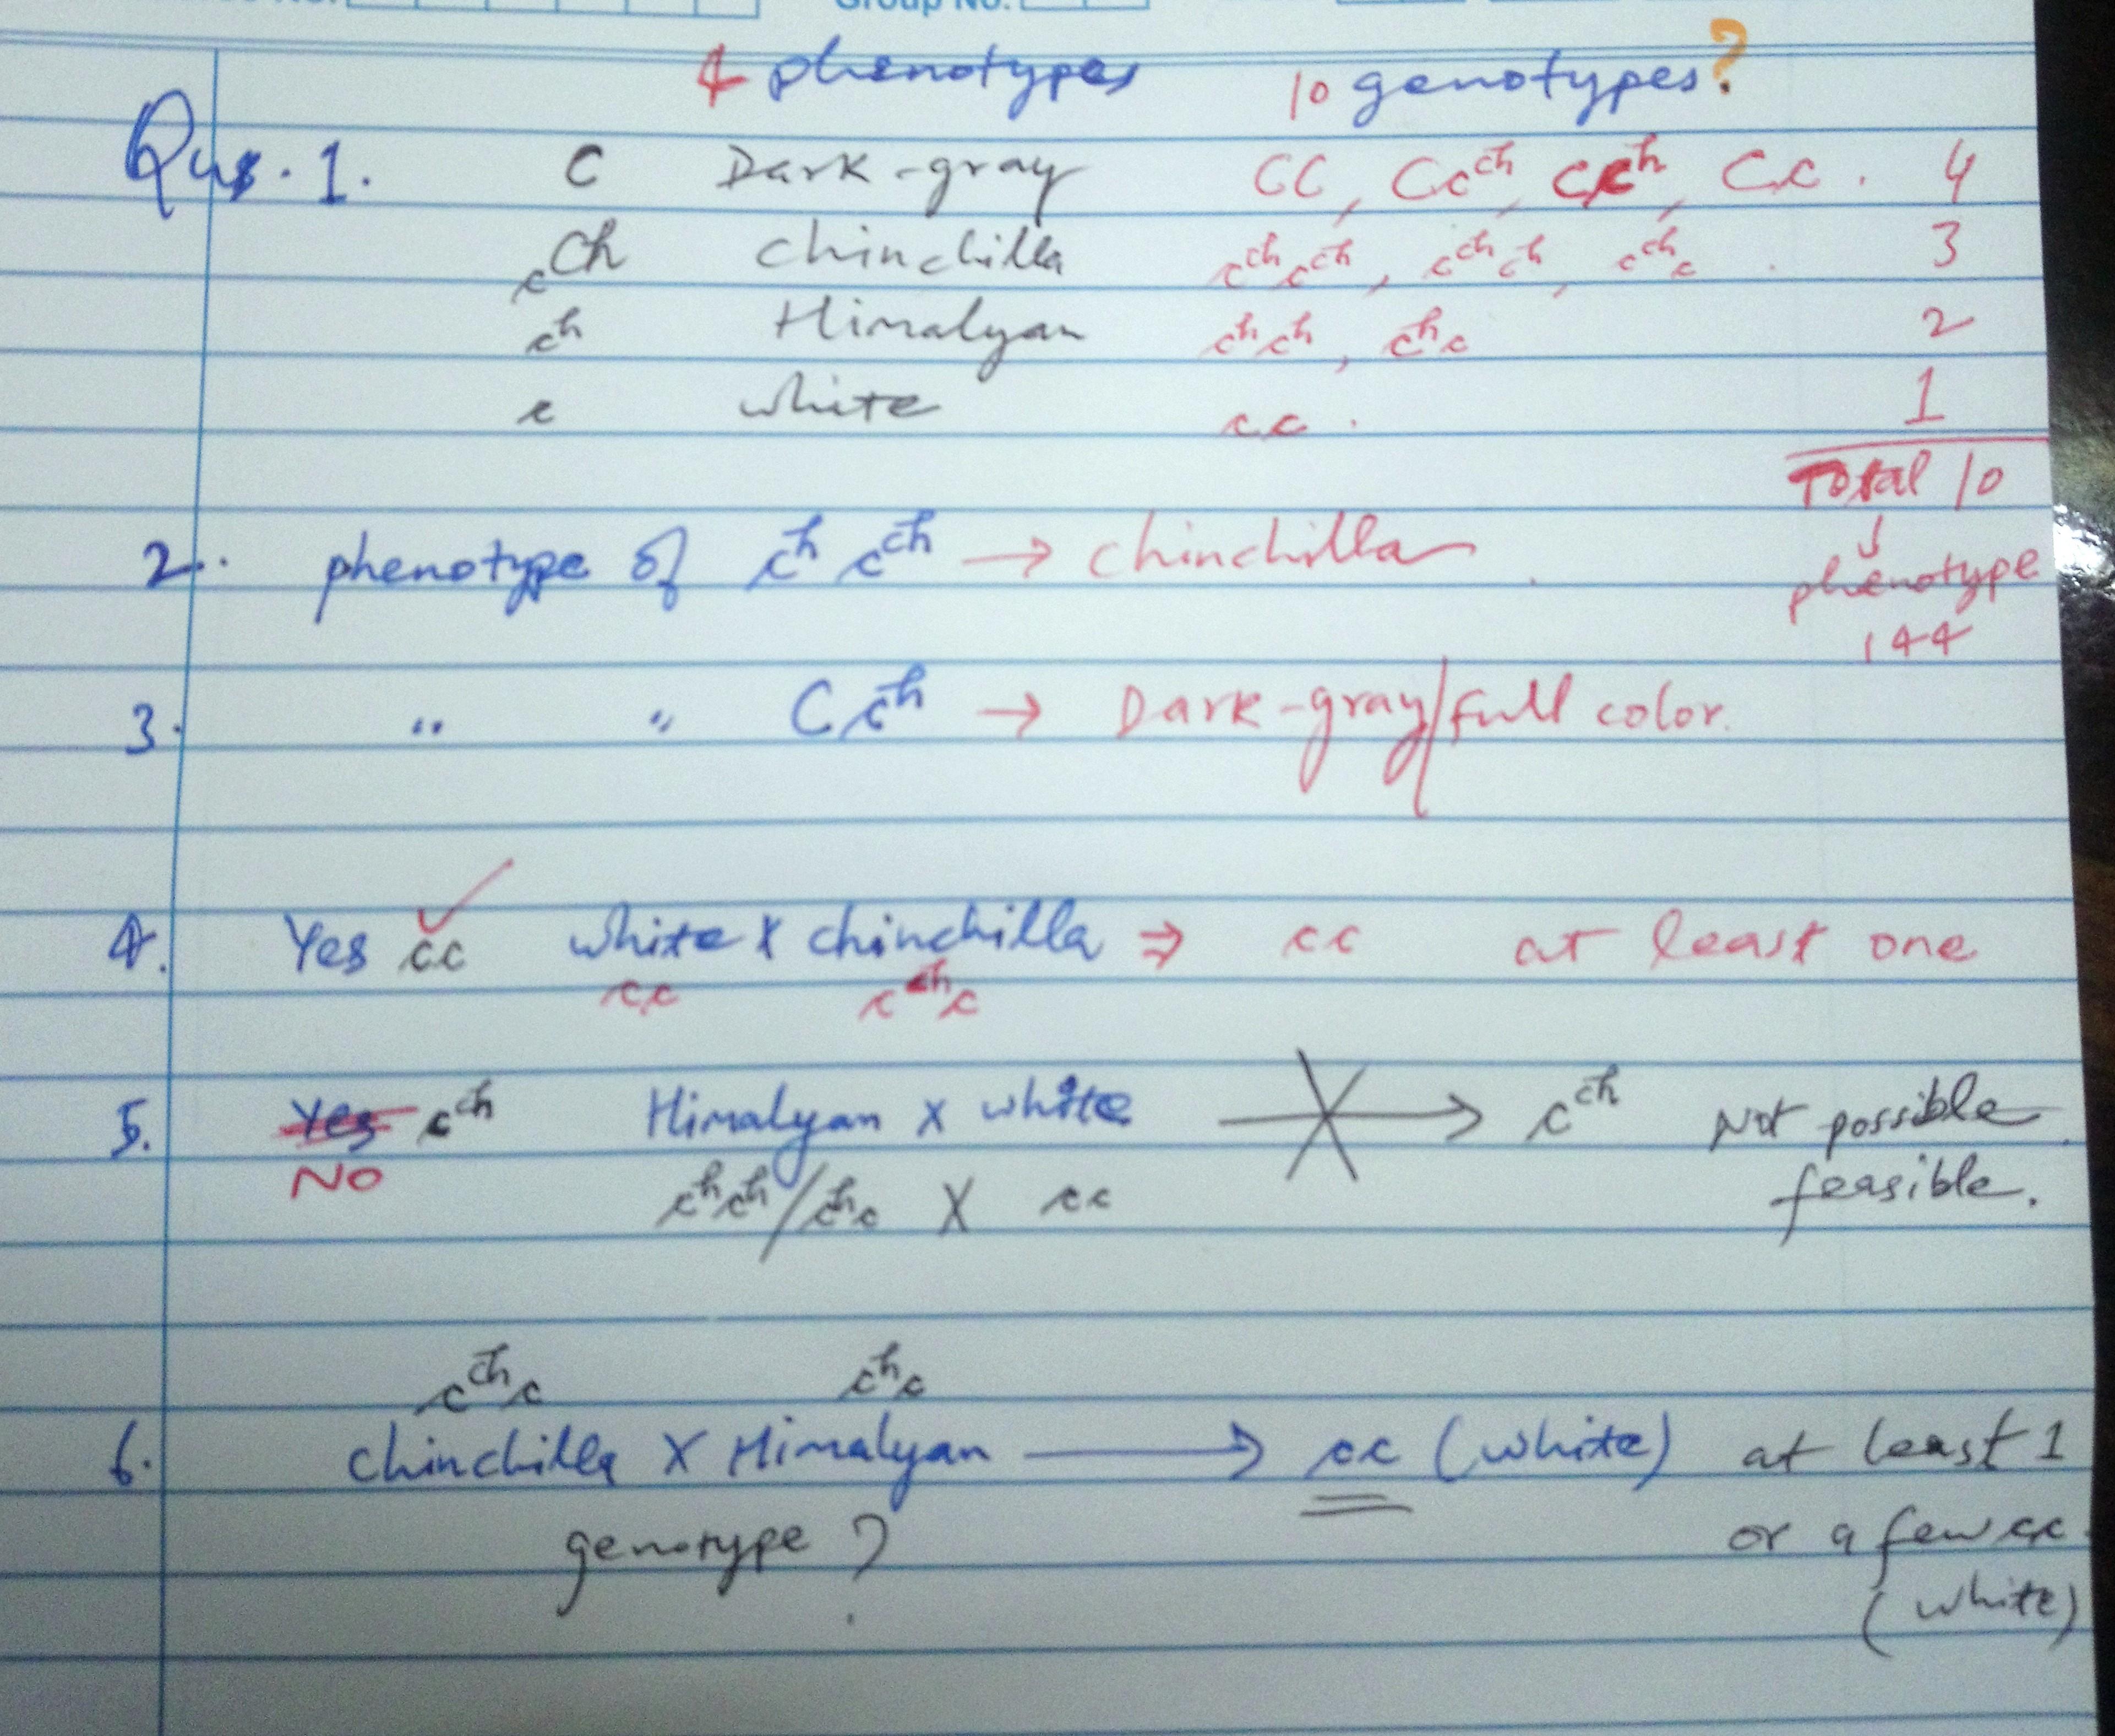 Group No.
4 phenotypes 10 genotypes?
Qus. 1. C Dark-gray CC, Cc^ch, Cc^h, Cc. 4
c^ch chinchilla c^ch c^ch, c^ch c^h, c^ch c. 3
c^h Himalyan c^h c^h, c^h c 2
c white cc. 1
Total 10
↓
2. phenotype of c^h c^ch → chinchilla. phenotype
144
3. " " C c^h → Dark-gray/full color.
4. Yes cc white X chinchilla ⇒ cc at least one
cc c^ch c
5. Yes c^ch Himalyan X white → c^ch Not possible
NO c^h c^h / c^h c X cc feasible.
c^ch c c^h c
6. chinchilla X Himalyan → cc (white) at least 1
genotype? or a few cc
(white)